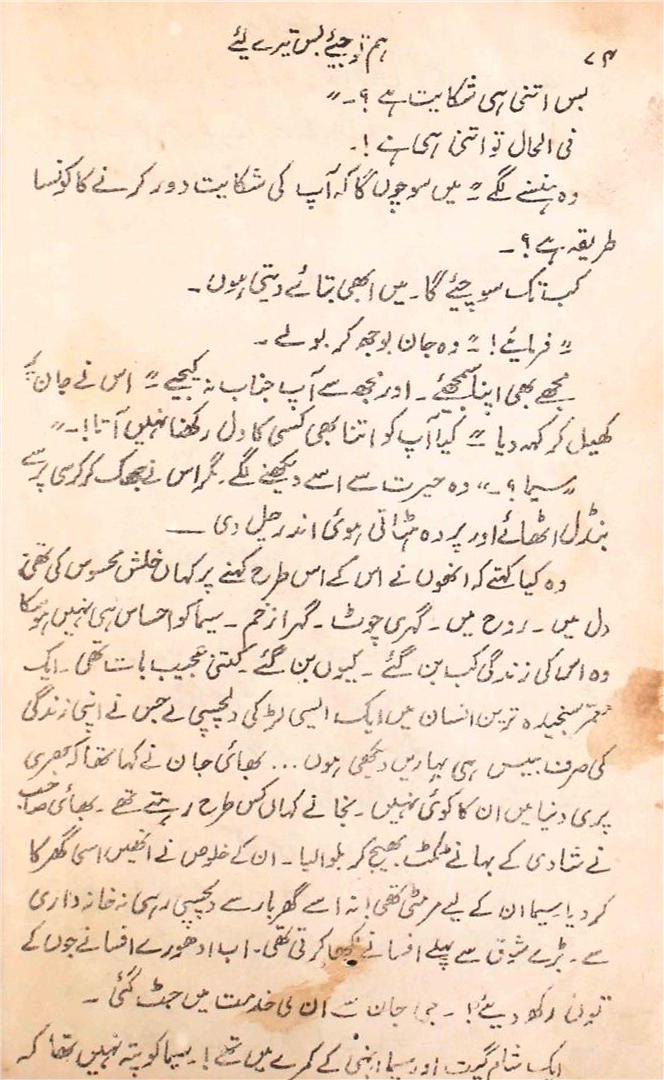 ۷۴
ہم تو جیئے بس تیرے لیئے
بس اتنی ہی شکایت ہے ؟۔"
فی الحال تو اتنی ہی ہے !۔
وہ ہنسنے لگے " میں سوچوں گا کہ آپ کی شکایت دور کرنے کا کونسا
طریقہ ہے ؟۔
کب تک سوچیئے گا۔ میں ابھی بتائے دیتی ہوں۔
" فرمایئے! " وہ جان بوجھ کر بولے ۔
مجھے بھی اپنا سمجھیئے ۔ اور مجھ سے آپ جناب نہ کیجیے " اس نے جان پر
کھیل کر کہہ دیا " کیا آپ کو اتنا بھی کسی کا دل رکھنا نہیں آتا !۔"
" سیما ؟۔" وہ حیرت سے اسے دیکھنے لگے۔ مگر اس نے جھک کر کرسی پر سے
بنڈل اٹھائے اور پردہ ہٹاتی ہوئی اندر چل دی —
وہ کیا کہتے کہ انھوں نے اس کے اس طرح کہنے پر کہاں خلش محسوس کی تھی
دل میں ۔ روح میں ۔ گہری چوٹ ۔ گہرا زخم ۔ سیما کو احساس ہی نہیں ہو سکا
وہ اس کی زندگی کب بن گئے ۔ کیوں بن گئے ۔ کتنی عجیب بات تھی ۔ ایک
معمر سنجیدہ ترین انسان میں ایک ایسی لڑکی کی دلچسپی لے جس نے اپنی زندگی
کی صرف بیس ہی بہاریں دیکھی ہوں ... بھائی جان نے کہا تھا کہ بھری
پری دنیا میں ان کا کوئی نہیں ۔ نجانے کہاں کس طرح رہتے تھے ۔ بھائی صاحب
نے شادی کے بہانے ٹکٹ بھیج کر بلوالیا ۔ ان کے خلوص نے انھیں اسی گھر کا
کر دیا۔ سیما ان کے لیے مر مٹی تھی ! نہ اسے گھر بار سے دلچسپی رہی نہ خانہ داری
سے ۔ بڑے شوق سے پہلے افسانے لکھا کرتی تھی۔ اب ادھورے افسانے جوں کے
توں رکھ دیئے ! ۔ جی جان سے ان کی خدمت میں جٹ گئی ۔
ایک شام گیت اور سیما انہی کے کمرے میں تھے ! سیما کو پتہ نہیں تھا کہ